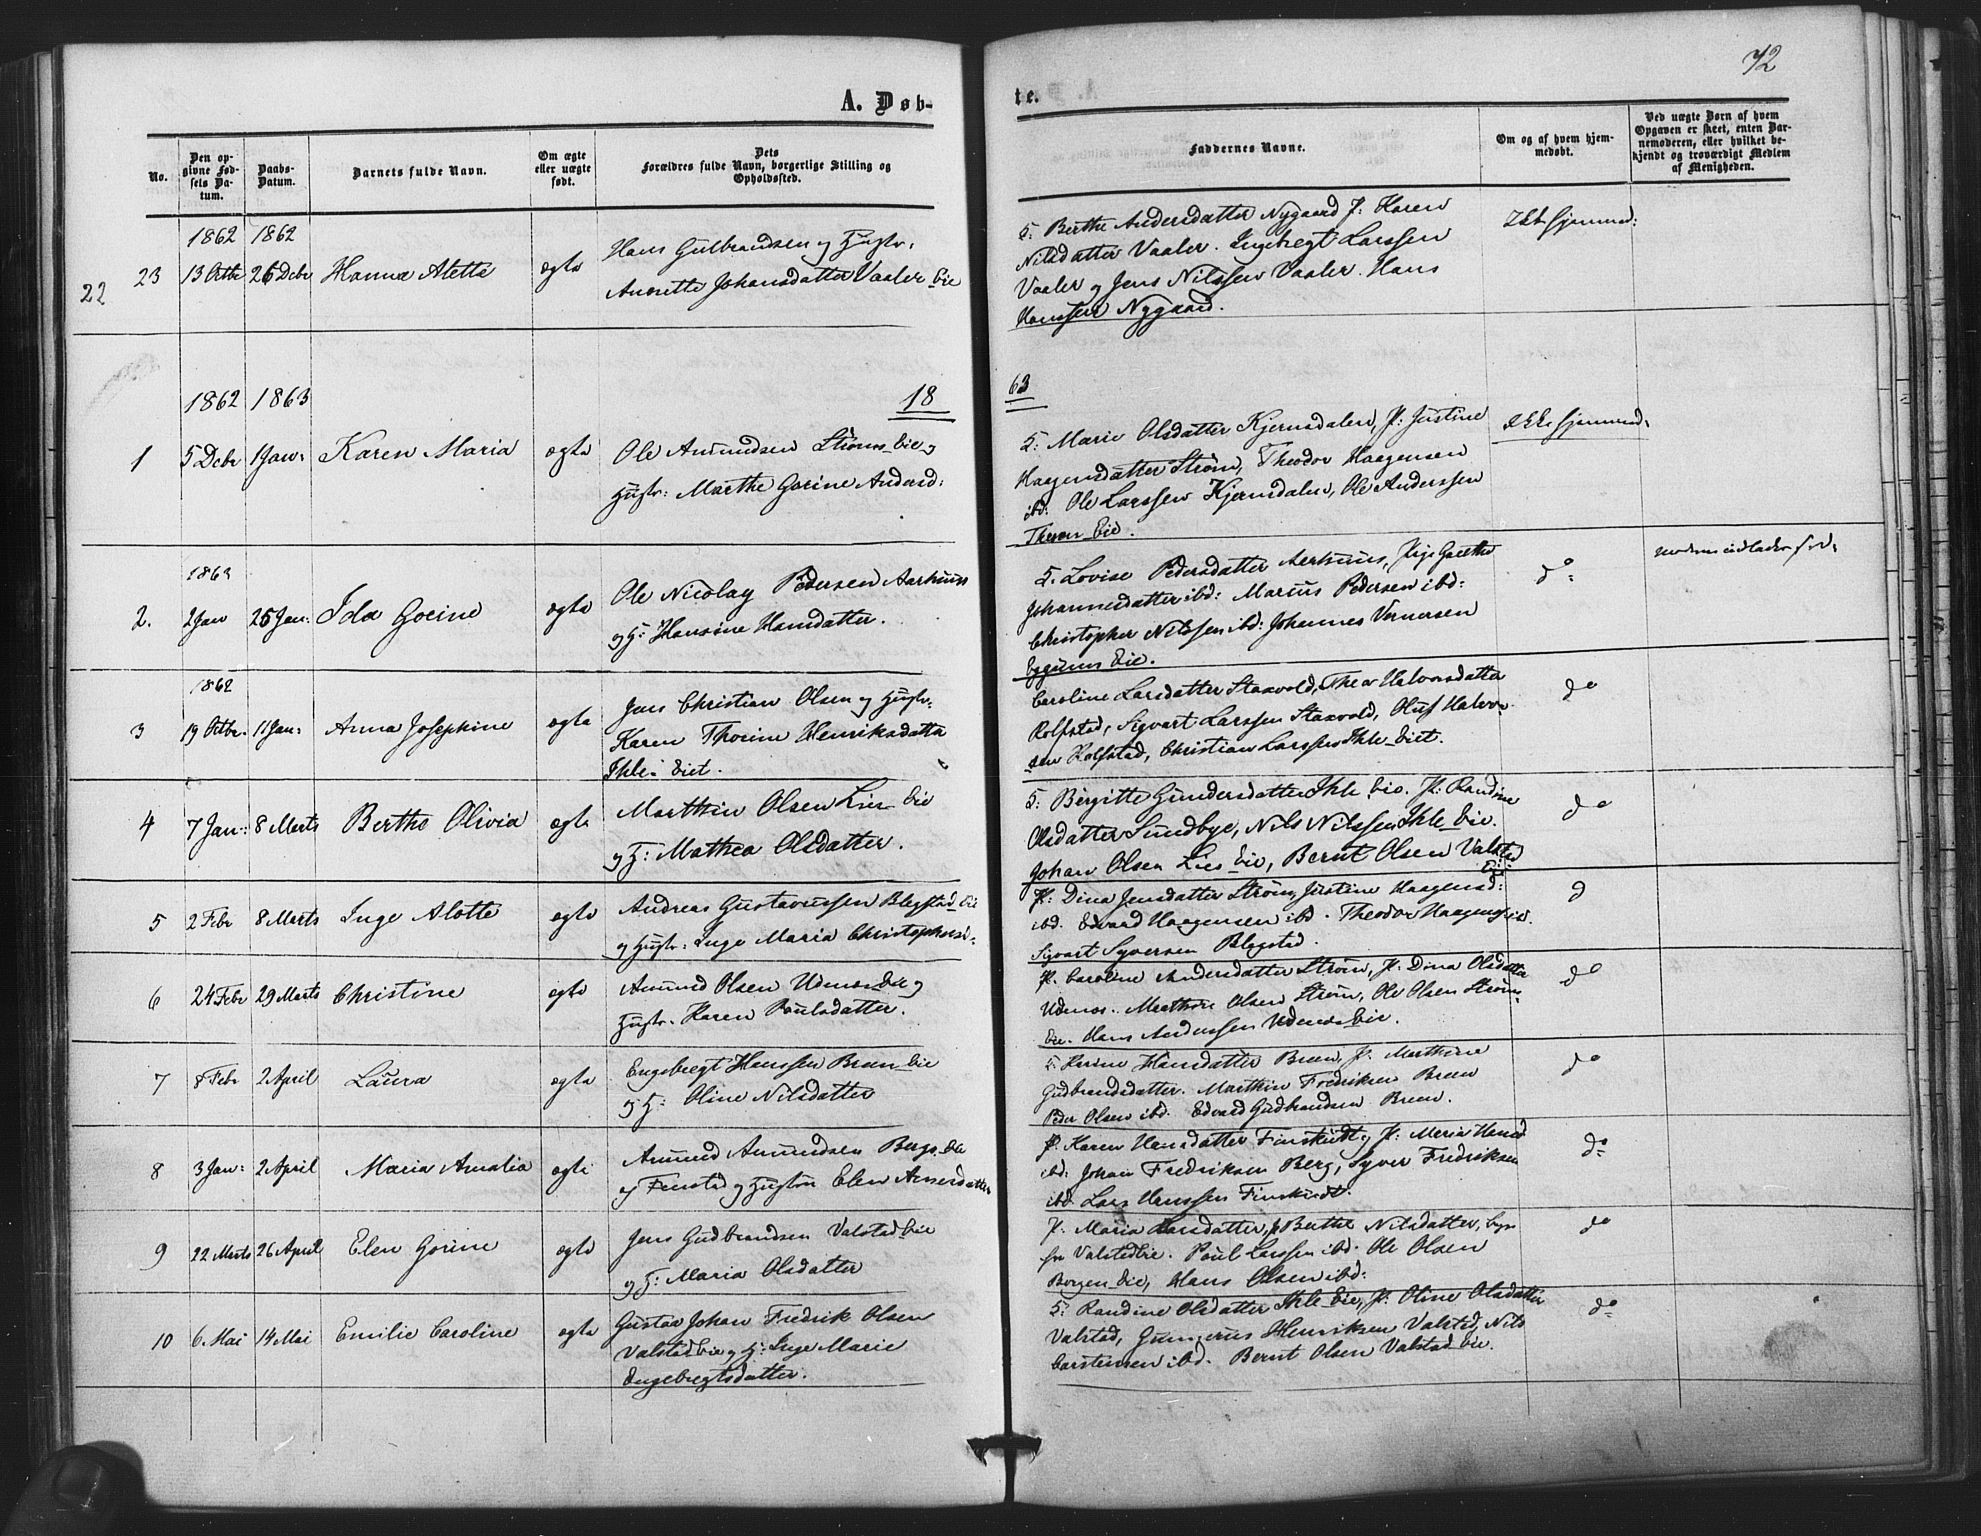 72
A. Døb-
te.
No.
Den op-
givne Fød-
sels Da-
tum.
Daabs-
Datum.
Barnets fulde Navn.
Om ægte
eller uægte
født.
Dets
Forældres fulde Navn, borgerlige Stilling og
Opholdssted.
Faddernes Navne.
Om og af hvem hjem-
medøbt.
Ved uægte Børn af hvem
Opgaven er skeet, enten Bar-
nemoderen, eller hvilket be-
kjendt og troværdigt Medlem
af Menigheden.
1862 1862
22 23 13 Octbr 26 Debr Hanna Alette ægte
Hans Gulbrandsen og Hustr.
Annette Johansdatter Vaaler Eie
G: Berthe Andersdatter Nygaard P: Karen
Nilsdatter Vaaler. Ingebregt Larssen
Vaaler og Jens Nilssen Vaaler. Hans
Hanssen Nygaard.
Ikke hjemmed:
1862 1863
18
63
1 5 Debr 1 Jan: Karen Maria ægte
Ole Amundsen Strøms Eie og
Hustr: Marthe Gorine Andersd:
G: Marie Olsdatter Kjernsdalen, P: Justine
Haagensdatter Strøm, Theodor Haagensen
ibd: Ole Larssen Kjernsdalen, Ole Anderssen
Eie.
Ikke hjemmed:
1863
2. 2 Jan 25 Jan: Ida Gorine ægte
Ole Nicolay Pedersen Aarhuus
og H: Hansine Hansdatter.
G. Lovise Pedersdatter Aarhuus, Pige Grethe
Johannesdatter ibd: Marius Pedersen ibd:
Christopher Nilssen ibd: Johannes Vernersen
Eie.
do:
1862
3 19 Octbr. 11 Jan: Anna Josephine ægte
Jens Christian Olsen og Hustr.
Karen Thorine Henriksdatter
Ihle-Eiet.
Caroline Larsdatter Staxvold, Thea Halvorsdatter
Rolfstad, Sigvart Larssen Staxvold, Oluf Halvor-
sen Rolfstad, Christian Larssen Ihle-Eiet.
do
4 7 Jan: 8 Marts Berthe Olivia ægte
Marthin Olsen Lier Eie
og H: Mathea Olsdatter.
G: Birgitte Gundersdatter Ihle Eie. P: Randine
Olsdatter Sundbye, Nils Nilssen Ihle-Eie.
Johan Olsen Lier Eie, Bernt Olsen Valstad
Eie
do
5 2 Febr 8 Marts Inge Alotte ægte
Andreas Gustavussen Blegstad Eie
og Hustr: Inge Maria Christophersd:
P: Dina Jensdatter Strøm, Justine Haagensd:
ibd. Edvard Haagensen ibd. Theodor Haagens. ibd.
Sigvart Syversen Blegstad.
do
6 24 Febr 29 Marts Christine ægte
Amund Olsen Udnæs Eie og
Hustr. Karen Paulsdatter.
P. Caroline Andersdatter Strøm, P: Dina Olsdatter
Udenes. Marthin Olsen Strøm, Ole Olsen Strøms-
Eie. Hans Anderssen Udenes Eie.
do
7 8 Febr 2 April Laura ægte
Engebregt Hanssen Breen Eie
og H: Oline Nilsdatter
G: Karine Hansdatter Breen, P. Marthine
Gudbrandsdatter. Marthin Fredriksen Breen
Peder Olsen ibd. Edvard Gudbrandsen Breen.
do
8 3 Jan: 2 April Maria Amalia ægte
Amund Amundsen Bergs Eie
og Hustru Elen Arnesdatter
P: Karen Hansdatter P: Maria Hansd
ibd: Johan Fredriksen Berg, Syver Fredriksen
ibd. Lars Hanssen
do
9 22 Marts 26 April Elen Gorine ægte
Jens Gudbrandsen Valstad Eie
og H: Maria Olsdatter
P: Maria Larsdatter, P Berthe Nilsdatter, begge
fra Valstad Eie. Paul Larssen ibd. Ole Olsen
Borgen Eie, Hans Olsen ibd:
do
10 6. Mai 14 Mai Emilie Caroline ægte
Gustav Johan Fredrik Olsen
Valstad Eie og H: Inge Marie
Engebregtsdatter.
G: Randine Olsdatter Ihle Eie, P: Oline Olsdatter
Valstad, Gunnerus Henriksen Valstad, Nils
Carstensen ibd. Bernt Olsen Valstad Eie.
do